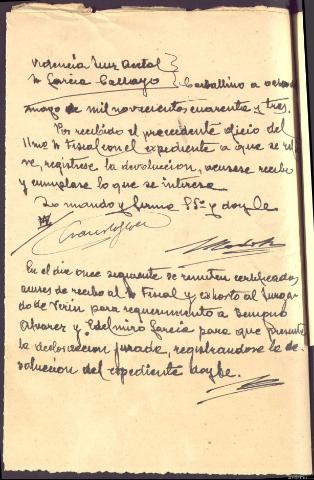 Providencia Juez Accal
Sr Garcia Carballo Carballino a ocho
mayo de mil novecientos cuarenta y tres.
Por recibido el precedente oficio del
Ilmo Sr Fiscal con el expediente a que se refie
re, registrese la devolucion, acusese recibo
y cumplase lo que se interesa
Lo mando y firma SSª y doy fe
En el dia once siguiente se remiten certificados
acuses de recibo al Sr Fiscal y exhorto al Juzga
do de Verin para requerimiento a
Alvarez y Edelmiro Garcia para que presente
la declaracion jurada, registrandose la de
volucion del expediente doy fe.